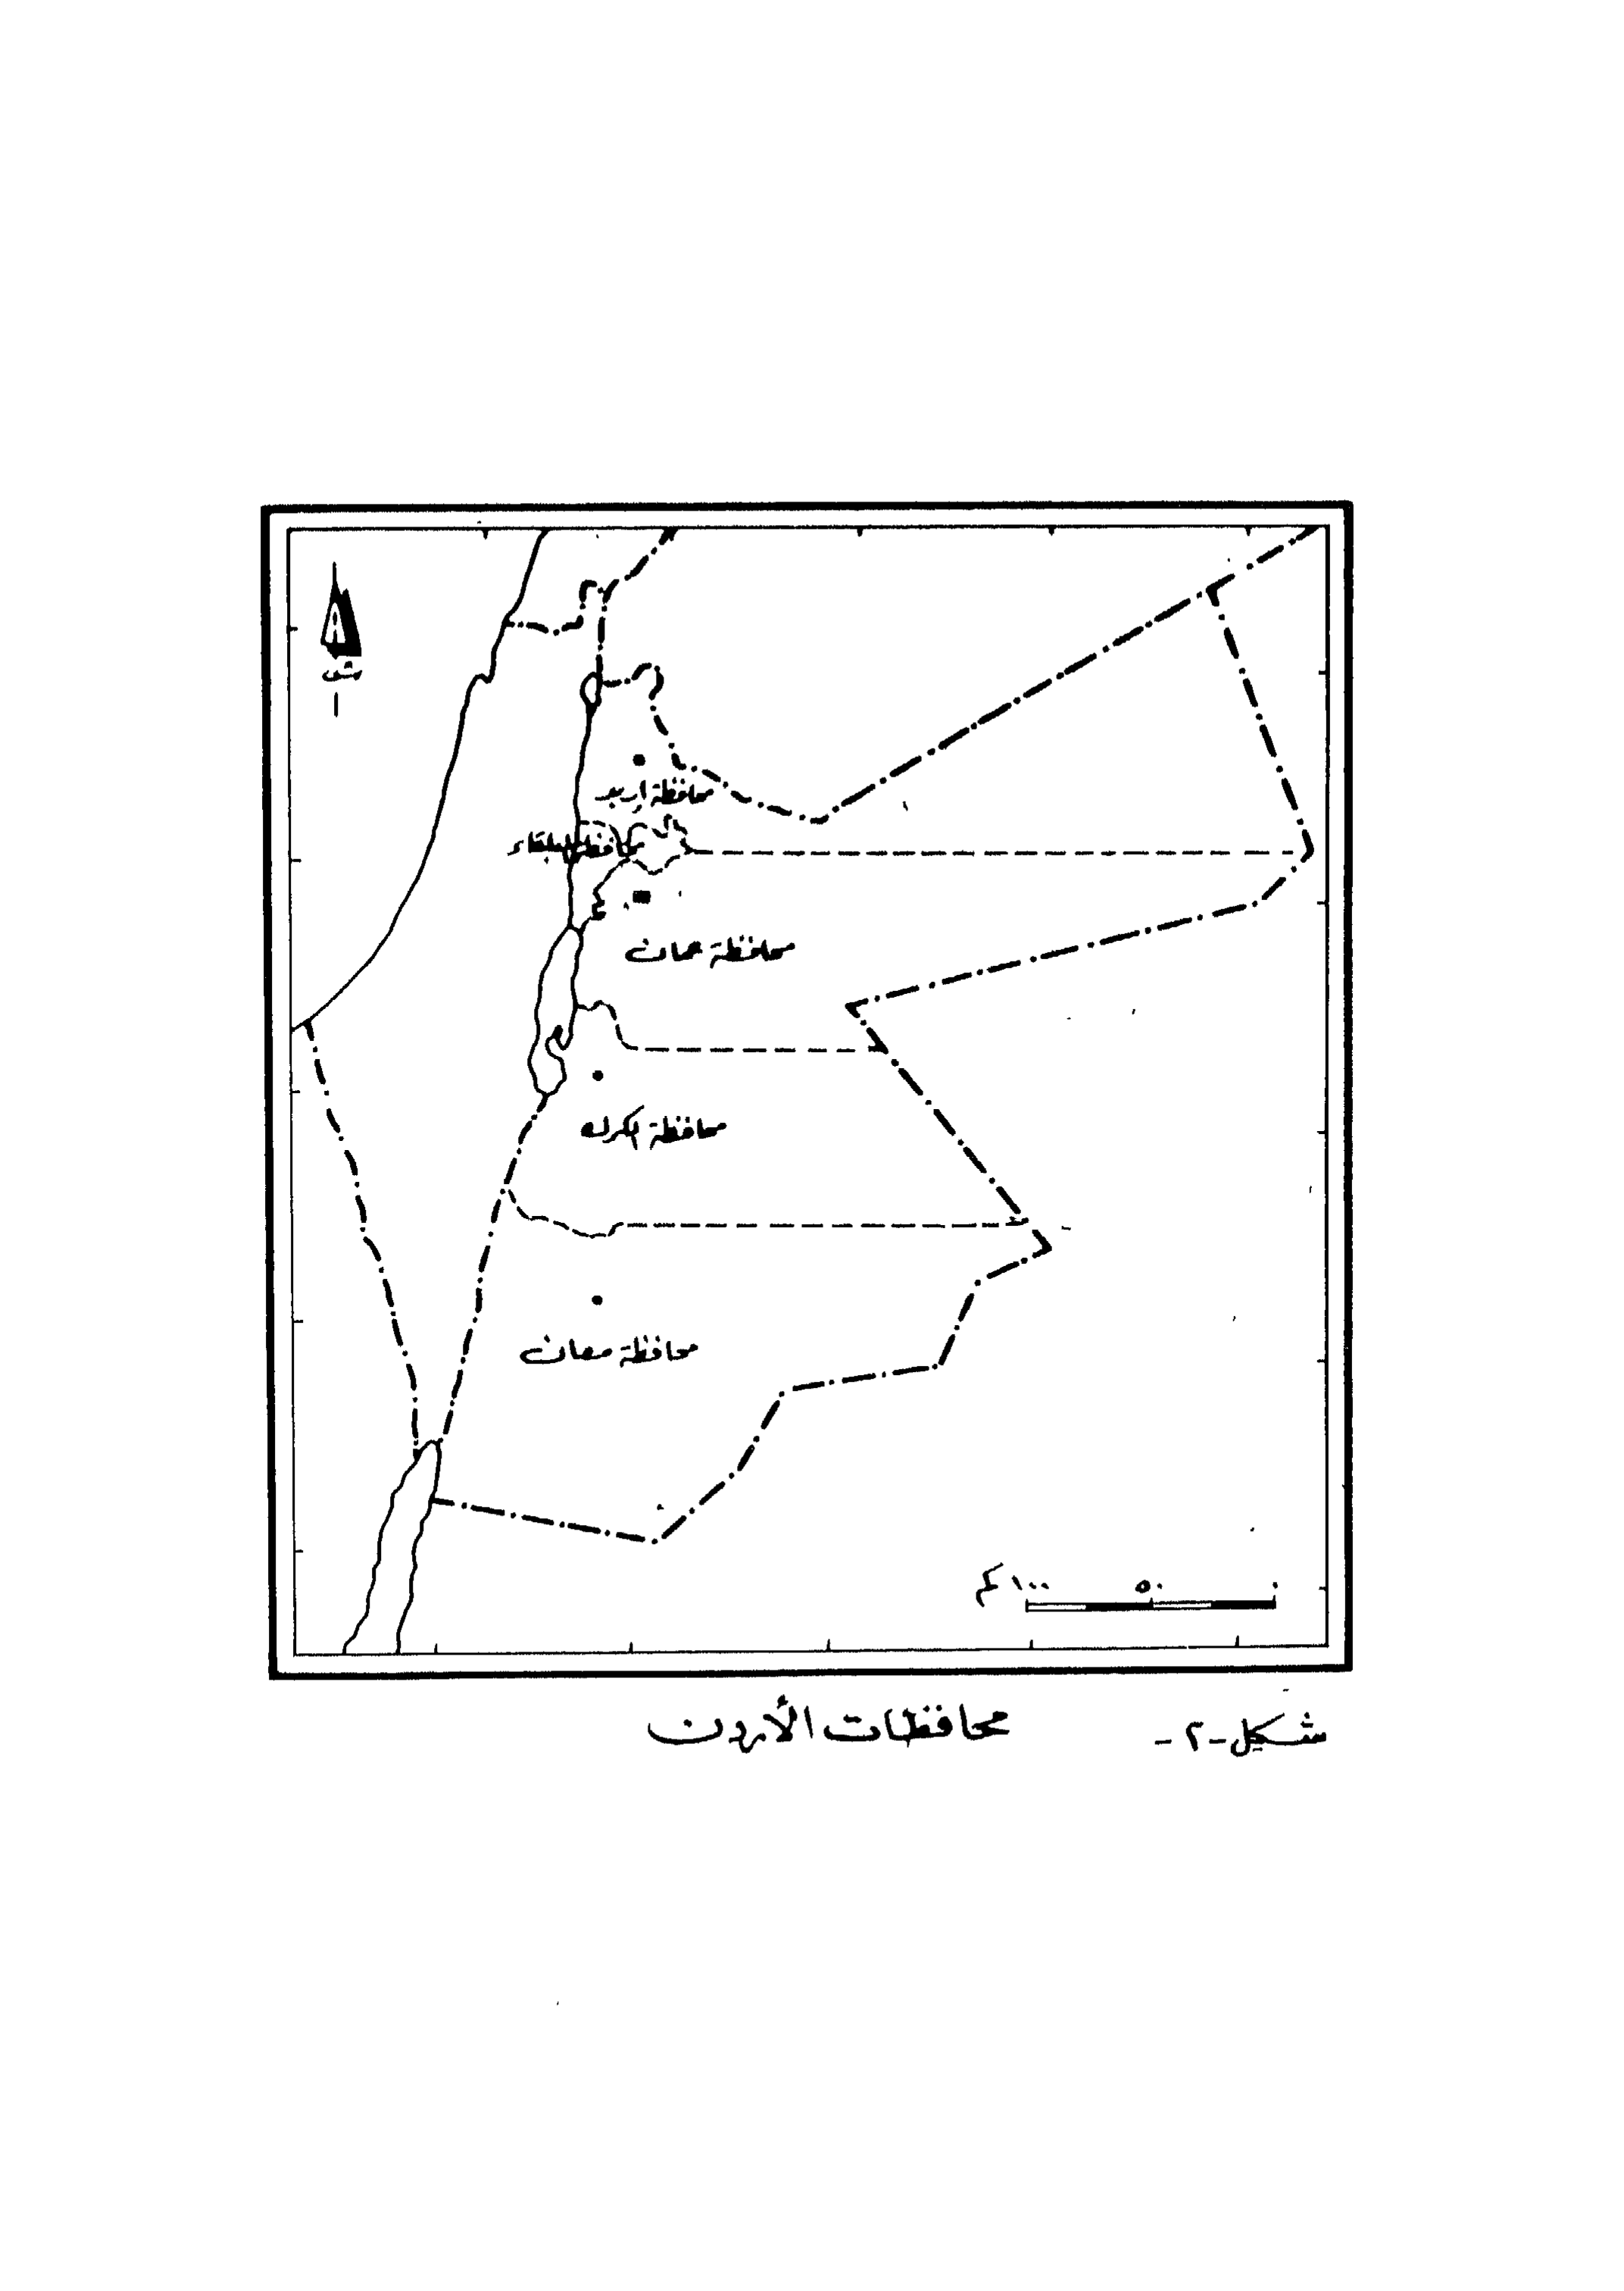 ش
محافظة اربد
محافظة البلقاء
محافظة عمان
محافظة الكرك
محافظة معان
١٠٠ كم ٥٠ ٠
شكل -٢- محافظات الأردن